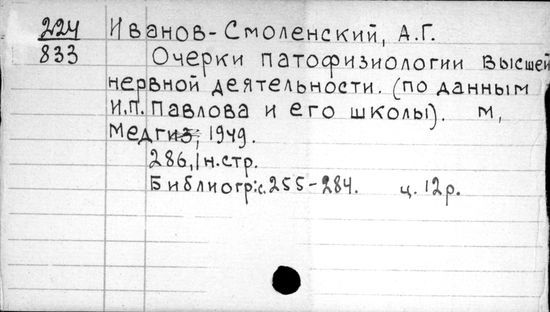 224 Иванов-Смоленский, А.Г.
833 Очерки патофизиологии высшей
нервной деятельности. (по данным
И.П. Павлова и его школы). М,
Медгиз, 1949.
286,1 н.стр.
Библиогр: с. 255-284. ц. 12р.